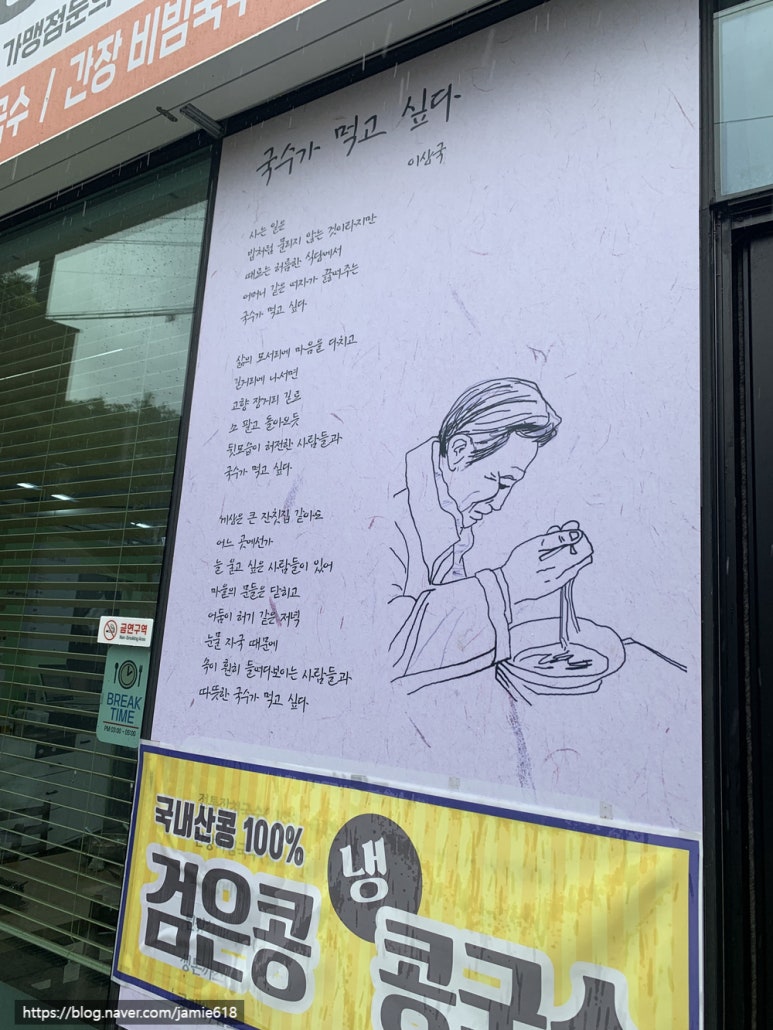 가맹점문의
국수 / 간장 비빔국수
국수가 먹고 싶다
이상국
사는 일은
밥처럼 물리지 않는 것이라지만
때로는 허름한 식당에서
어머니 같은 여자가 끓여주는
국수가 먹고 싶다
삶의 모서리에 마음을 다치고
길거리에 나서면
고향 장거리 길로
소 팔고 돌아오듯
뒷모습이 허전한 사람들과
국수가 먹고 싶다
세상은 큰 잔칫집 같아도
어느 곳에선가
늘 울고 싶은 사람들이 있어
마을의 문들은 닫히고
어둠이 허기 같은 저녁
눈물 자국 때문에
속이 훤히 들여다보이는 사람들과
따뜻한 국수가 먹고 싶다
금연구역
Non-Smoking Area
BREAK
TIME
PM 03:00 - 05:00
국내산콩 100%
냉
검은콩
콩국수
https://blog.naver.com/jamie618